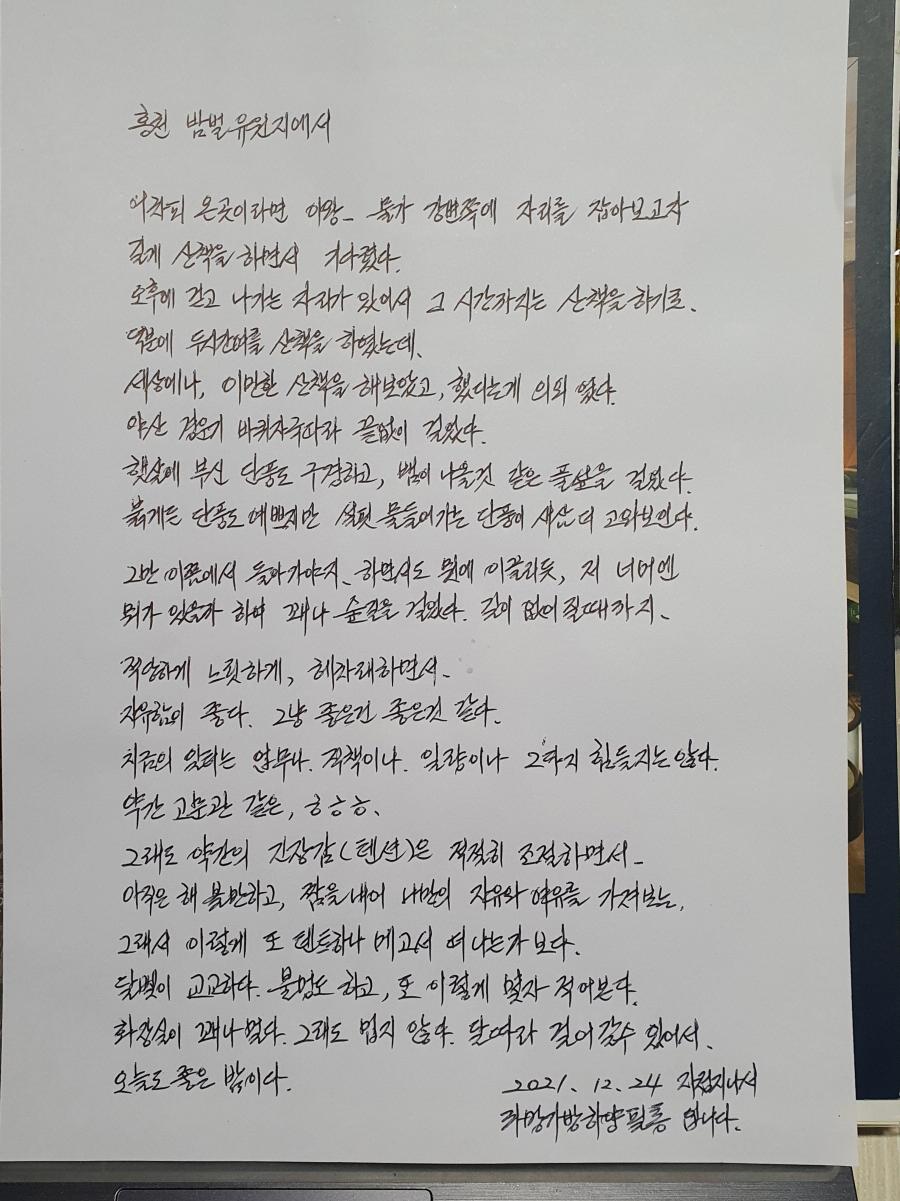 홍천 밤벌유원지에서
어차피 온곳이라면 이왕_ 물가 강변쪽에 자리를 잡아보고자
길게 산책을 하면서 기다렸다.
오후에 걷고 나가는 자리가 있어서 그 시간까지는 산책을 하기로.
덕분에 두시간여를 산책을 하였는데.
세상에나, 이만한 산책을 해보았고, 했다는게 의외 였다.
야산 경운기 바퀴자국따라 끝없이 걸었다.
햇살에 부신 단풍도 구경하고, 뱀이 나올것 같은 풀섶을 걸었다.
붉게든 단풍도 예쁘지만 설핏 물들어가는 단풍이 새삼 더 고와보인다.
그만 이쯤에서 돌아가야지. 하면서도 뭔에 이끌리듯, 저 너머엔
뭐가 있을까 하여 꽤나 숲길을 걸었다. 길이 없어질때까지.
적당하게 느릿하게, 해찰해하면서.
자유함이 좋다. 그냥 좋은건 좋은것 같다.
지금의 일터는 업무나. 직책이나. 일량이나 그다지 힘들지는 않다.
약간 고문관 같은, ㅎㅎㅎ.
그래도 약간의 긴장감(텐션)은 적절히 조절하면서_
아직은 해 볼만하고, 짬을내어 내만의 자유와 여유를 가져보는,
그래서 이렇게 또 텐트하나 메고서 떠나는가 보다.
달빛이 고교하다. 불멍도 하고, 또 이렇게 몇자 적어본다.
화장실이 꽤나 멀다. 그래도 멉지 않다. 달따라 걸어갈수 있어서.
오늘도 좋은 밤이다.
2021. 12. 24 자정지나서
입니다.